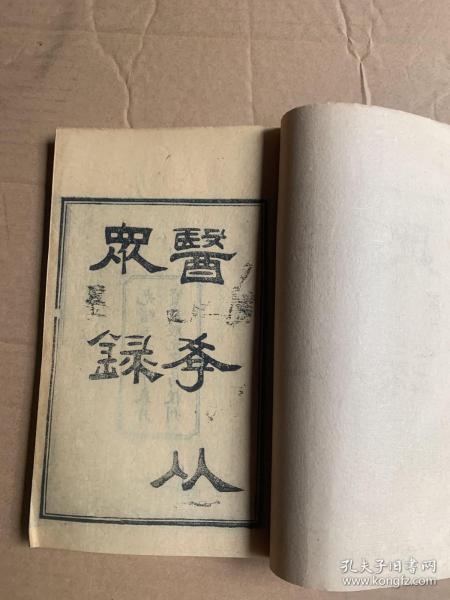 醫孝从
眾錄
孔夫子旧书网
www.kongfz.com